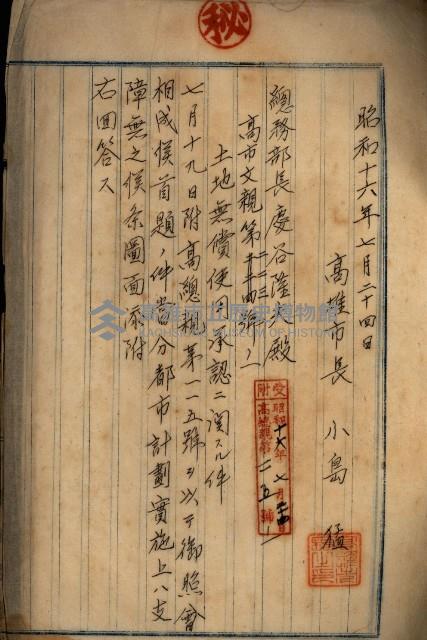 秘
昭和十六年七月二十四日
高雄市長 小島 猛
總務部長慶谷隆殿
高市文親第
土地無償使用承認ニ関スル件
七月十九日附高總親第一一五號ヲ以テ御照會
相成候首題ノ件當分都市計劃實施上ハ支
障無之候条圖面添附
右回答ス
受附
昭和十六年七月
高總親第一一五號ノ
高雄市立歷史博物館
MUSEUM OF HISTORY